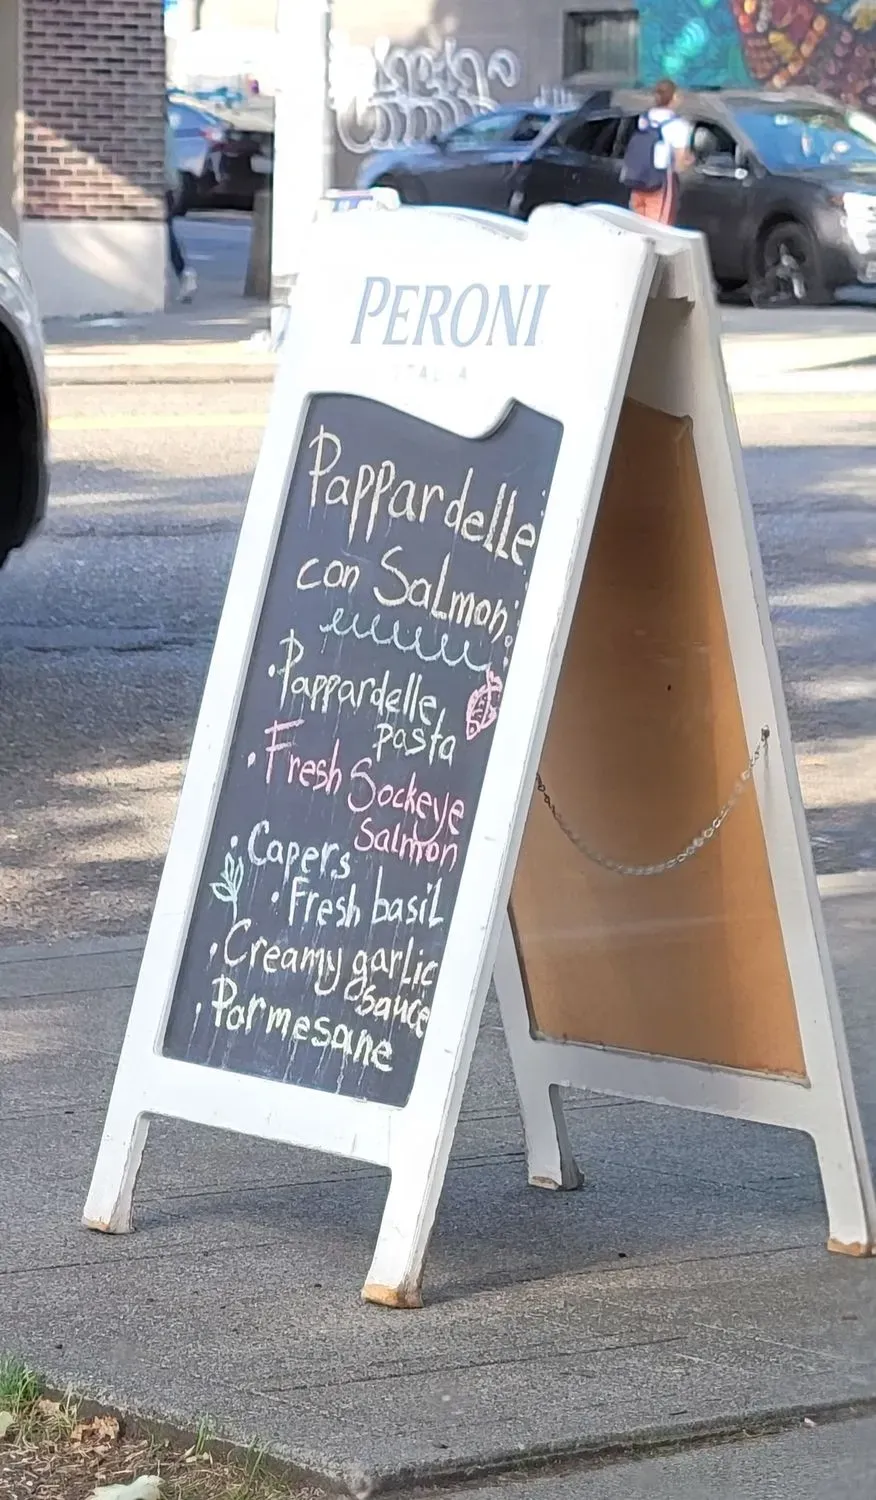 PERONI
ITALIA
Pappardelle
con Salmon:
• Pappardelle
pasta
• Fresh Sockeye
Salmon
• Capers
• Fresh basil
• Creamy garlic
sauce
• Parmesane